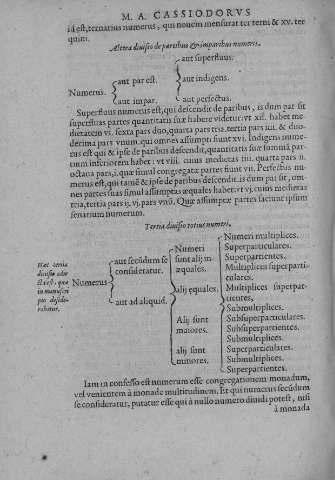 M. A. CASSIODORVS
id est, ternarius numerus, qui nouem mensurat ter terni & xv. ter
quini.
Altera diuisio de paribus & imparibus numeris.
aut superfluus.
aut par est.
aut indigens.
Numerus.
aut impar.
aut perfectus.
Superfluus numerus est, qui descendit de paribus, is dum par sit
superfluas partes quantitatis suæ habere videtur: vt xii. habet me-
dietatem vi. sexta pars duo, quarta pars tria, tertia pars iiii. & duo-
décima pars vnum. qui omnes assumpti fiunt xvi. Indigens nume-
rus est qui & ipse de paribus descendit, quantitatis suæ summā par-
tium inferiorem habet: vt viii. cuius medietas iiii. quarta pars ii.
octaua pars, i. quæ simul congregatæ partes fiunt vii. Perfectus nu-
merus est, qui tamē & ipse de paribus descendit. is dum par sit, om-
nes partes suas simul assumptas æquales habet. vt vj. cuius medietas
tria, tertia pars ij. vj. pars vnū. Quæ assumptæ partes faciunt ipsum
senarium numerum.
Tertia diuisio totius numeri.
Numeri multiplices.
Numeri
Superparticulares.
Hæc tertia
aut secūdum se
sunt alij in-
Superpartientes.
diuisio edo-
consideratur.
æquales.
Multiplices superparti-
culares.
in manuscri
Numerus
alij equales.
Multiplices superpar-
pto deside-
tientes.
rabatur.
aut ad aliquid.
Submultiplices.
Alij sunt
Subsuperparticulares.
maiores.
Subsuperpartientes.
Submultiplices.
alij sunt
Superparticulares.
minores.
Submultiplices.
Superpartientes.
Iam in confesso est numerum esse congregationem monadum,
vel venientem à monade multitudinem. Et qui numerus secūdum
se consideratur, putatur esse qui à nullo numero diuidi potest, nisi
à monada